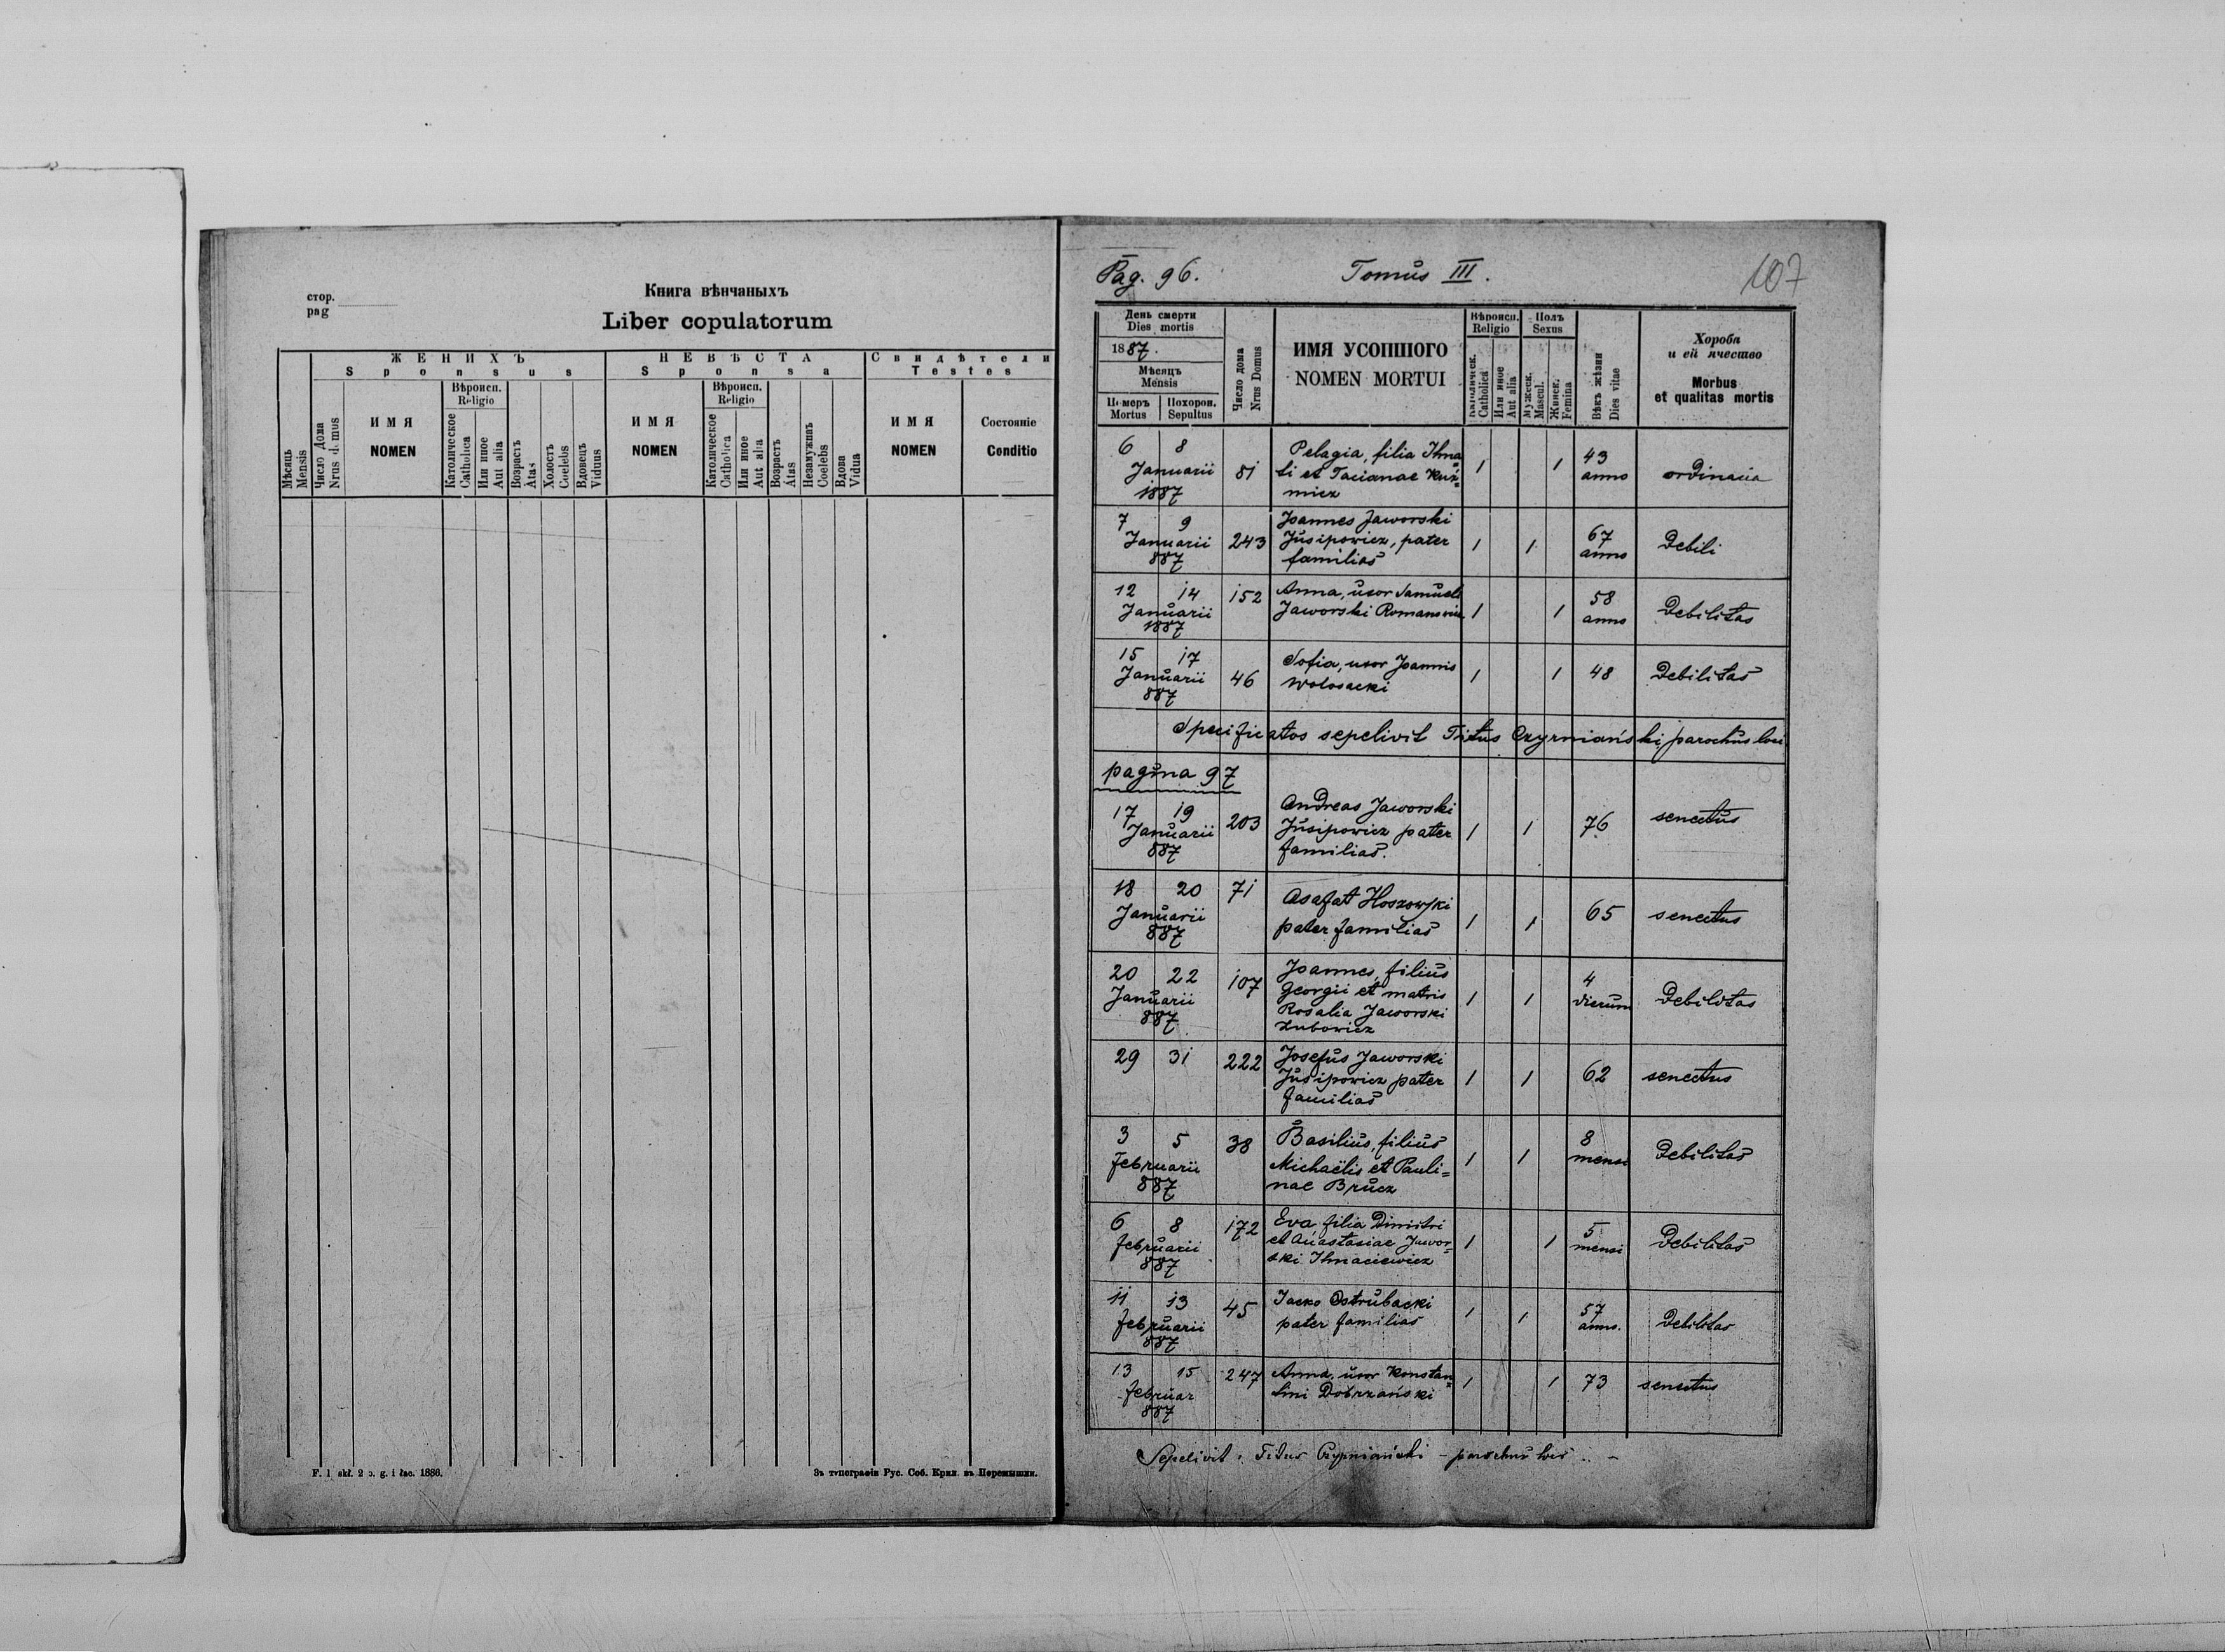 стор.
pag
Книга вѣнчаныхъ
Liber copulatorum
Мѣсяць
Mensis
Число Дома
Nrus domus
ЖЕНИХЪ
Sponsus
ИМЯ
NOMEN
Вѣроисп.
Religio
Католическое
Catholica
Или иное
Aut alia
Возрастъ
Ætas
Холостъ
Coelebs
Вдовецъ
Viduus
НЕВѢСТА
Sponsa
ИМЯ
NOMEN
Вѣроисп.
Religio
Католическое
Catholica
Или иное
Aut alia
Возрастъ
Ætas
Незамужнаѣ
Coelebs
Вдова
Vidua
Свидѣтели
Testes
ИМЯ
NOMEN
Состоянiе
Conditio
F. 1 skł. 2 b. g. i łac. 1886.
Зъ типографiи Рус. Соб. Крил. въ Перемышли.
Pag. 96. Tomus III. 107
День смерти
Dies mortis
1887.
Мѣсяцъ
Mensis
Померъ
Mortus
Похорон.
Sepultus
Число дома
Nrus Domus
ИМЯ УСОПШОГО
NOMEN MORTUI
Вѣроисп.
Religio
Католическ.
Catholica
Или иное
Aut alia
Полъ
Sexus
Мужеск.
Mascul.
Женск.
Femina
Вѣкъ жизни
Dies vitae
Хороба
и ей ячество
Morbus
et qualitas mortis
6 8 Pelagia, filia Ihna= 43
Januarii 81 ti et Tacianae Kuź= 1 1 anno ordinaria
1887 micz
7 9 Joannes Jaworski 67
Januarii 243 Jusipowicz, pater 1 1 anno Debili
887 familias
12 14 152 Anna, uxor Samueli 58
Januarii Jaworski Romanowicz 1 1 anno Debilitas
1887
15 17 Sofia, uxor Joannis
Januarii 46 Wolosacki 1 1 48 Debilitas
887
Specificatos sepelivit Titus Czyrniański parochus loci
pagina 97
17 19 203 Andreas Jaworski
Januarii Jusipowicz pater 1 1 76 senectus
887 familias.
18 20 71 Asafat Hoszowski
Januarii pater familias 1 1 65 senectus
887
20 22 107 Joannes, filius 4
Januarii Georgii et matris 1 1 dierum Debilitas
887 Rosalia Jaworski
Zubowicz
29 31 222 Josefus Jaworski
Jusipowicz pater 1 1 62 senectus
familias
3 5 38 Basilius, filius 8
Februarii Michaëlis et Pauli= 1 1 mensi Debilitas
887 nae Brucz
6 8 172 Eva filia Dimitri 5
Februarii et Anastasiae Jawor= 1 1 mensi Debilitas
887 ski Ihnaciewicz
11 13 45 Jacko Ostrubacki 57
Februarii pater familias 1 1 anno. Debilitas
887
13 15 247 Anna, uxor Konstan=
Februar tini Dobrzański 1 1 73 senectus
887
Sepelivit: Titus Czyrniański - parochus loci